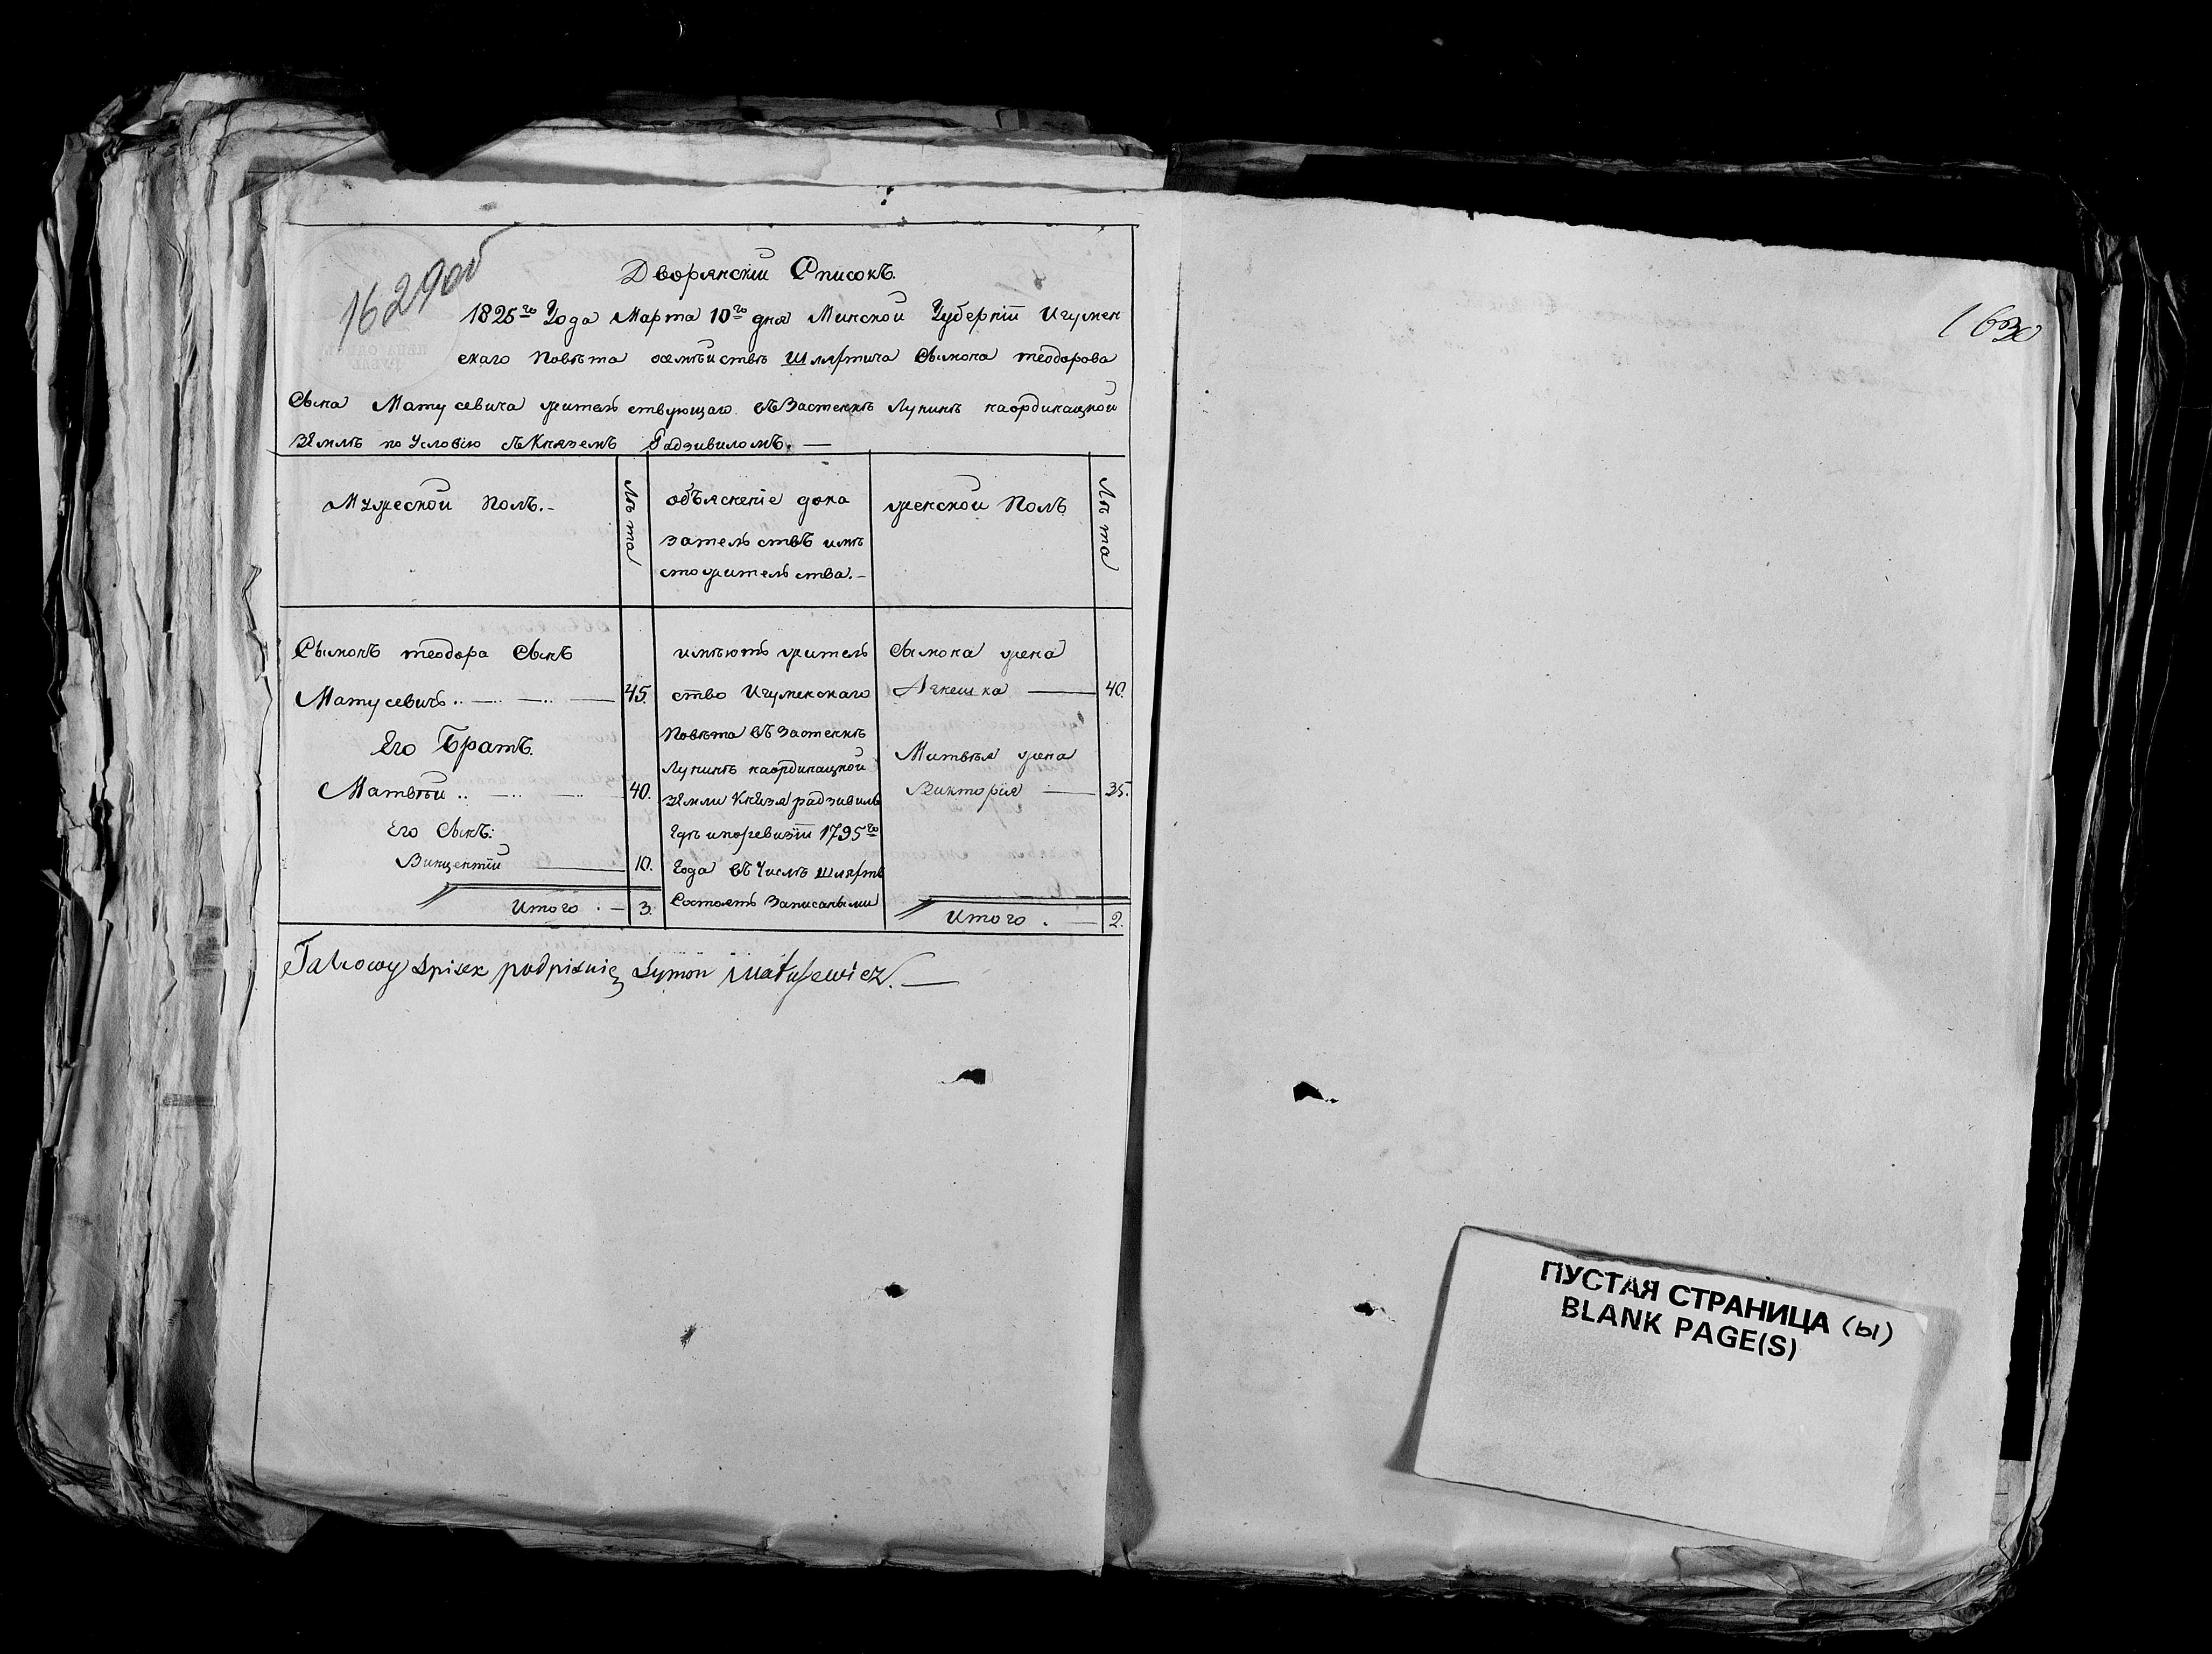 1629об
Дворянскій Списокъ.
1825го Года Марта 10го дня Минской Губерніи Игумен
скаго Повѣта осемѣйствѣ шляхтича Сымона теодорова
Сына Матусевича жительствующаго въ Застенкѣ Лунинѣ наординацкой
Землѣ по Условію съ Княземъ Радзивиломъ. —
Мужеской Полъ.-
Лѣта
объясненіе дока
зательствъ имѣ
стожительства.-
женской Полъ
Лѣта
Сымонъ теодора Сынъ
Матусевичъ .. — .. — .. — 45.
Его Братъ.
Матвѣй .. — .. — .. 40.
Его Сынъ:
Винцентій — 10.
Итого . — 3.
имѣютъ житель
ство Игуменскаго
Повѣта въ Застенкѣ
Лунинѣ наординацкой
Земли Князя радзивила
Гдѣ ипоревизіи 1795го
Года въ Числѣ шляхтъ
Состоятъ Записаными
Сымона жена
Агнешка — 40.
Матвѣя жена
Викторія — 35.
Итого . — 2.
Takowy Spisek podpisuię Symon Matusewicz. —
1630
ПУСТАЯ СТРАНИЦА (Ы)
BLANK PAGE(S)